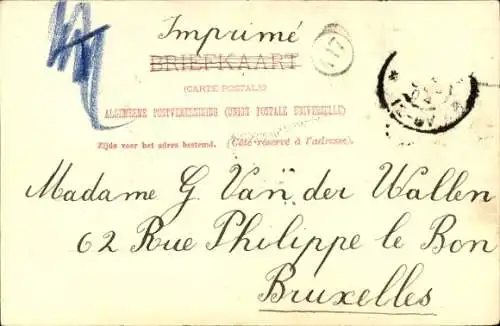 Imprimé
BRIEFKAART
(CARTE POSTALE)
ALGEMEENE POSTVEREENIGING (UNION POSTALE UNIVERSELLE)
Zijde voor het adres bestemd. (Côté réservé à l'adresse).
Madame G. Van der Wallen
62 Rue Philippe le Bon
Bruxelles